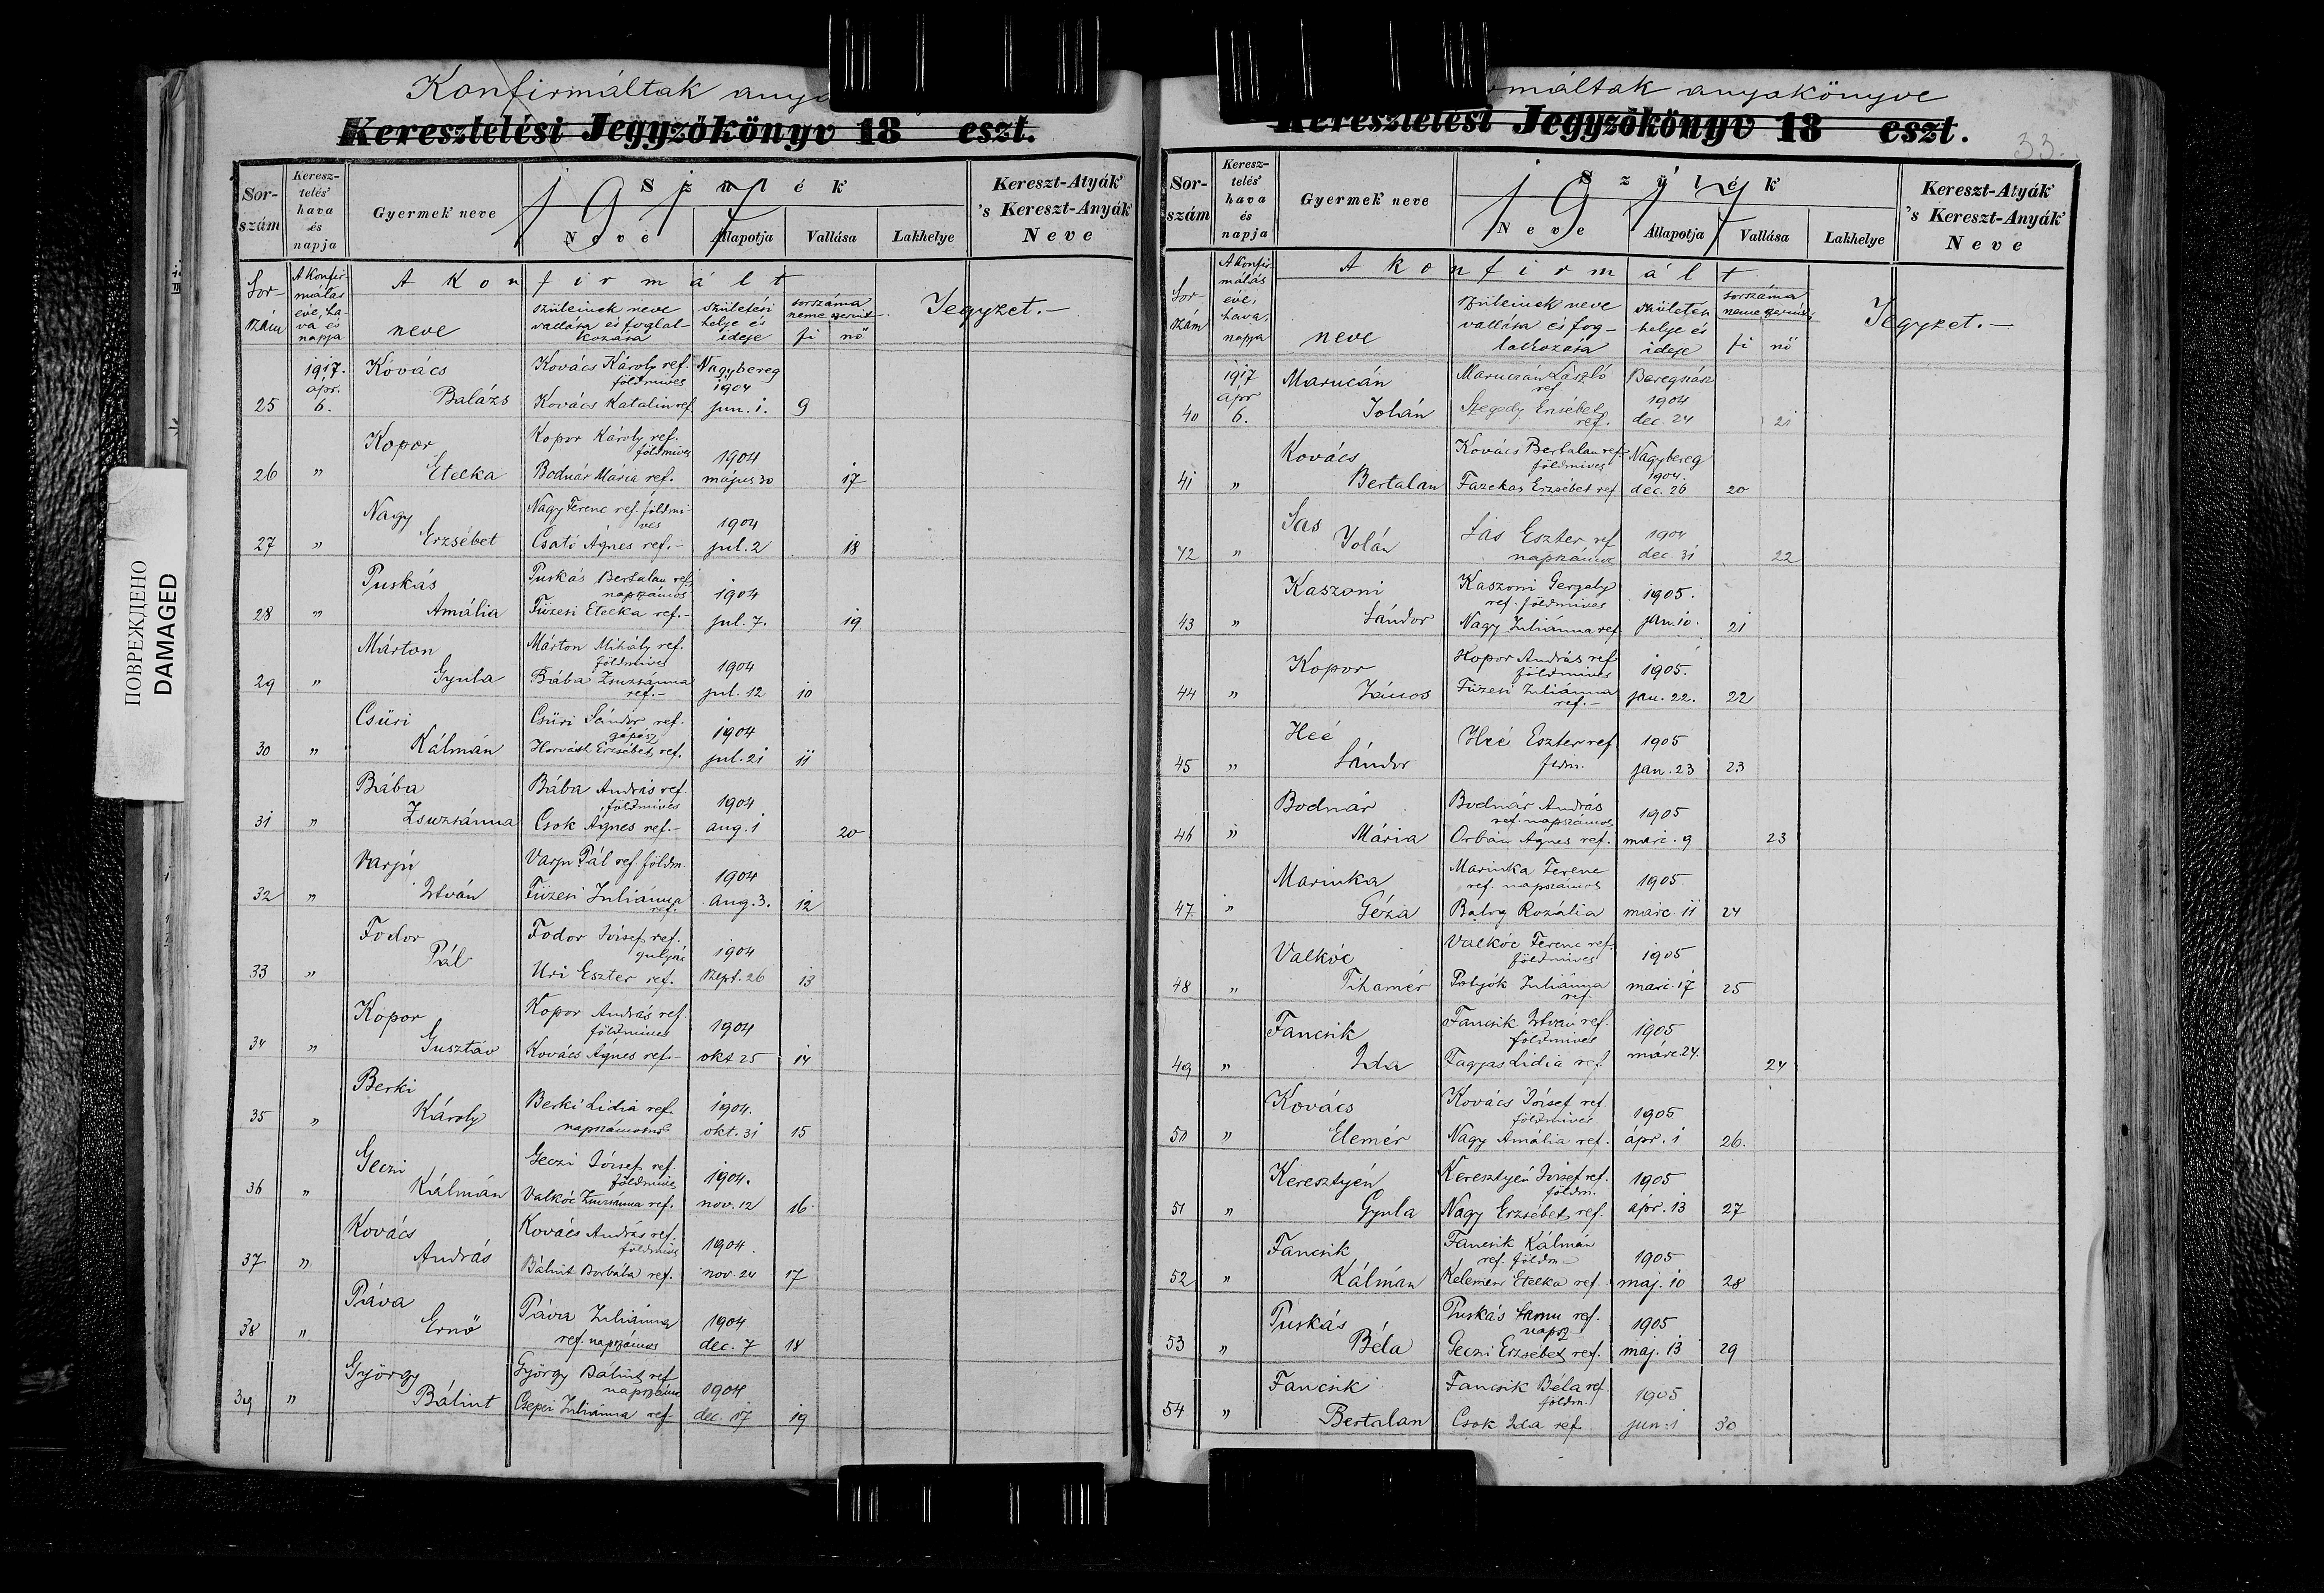 Konfirmáltak
Keresztelési Jegyzőkönyv 18 eszt.
Sor-szám
Keresz-telés' hava és napja
Gyermek neve
1917
Szülék
Neve
Állapotja
Vallása
Lakhelye
Kereszt-Atyák 's Kereszt-Anyák Neve
Sor-szám
A konfir-málás éve, ha-va és napja
A konfirmált
neve
szüleinek neve vallása és foglal-kozása
születési helye és ideje
sorszáma neme szerint
fi nő
Jegyzet.-
25 1917. apr. 6. Kovács Balázs
Kovács Károly ref. földmíves
Kovács Katalin ref.
Nagybereg 1904 jun. 1. 9
26 " Kopor Etelka
Kopor Károly ref. földmives
Bodnár Mária ref.
1904 május 30 17
27 " Nagy Erzsébet
Nagy Ferenc ref. földmi-ves
Csató Ágnes ref.-
1904 jul. 2 18
28 " Puskás Amália
Puskás Bertalan ref. napszámos
Füzesi Etelka ref.-
1904 jul. 7. 19
29 " Márton Gyula
Márton Mihály ref. földmives
Bába Zsuzsánna ref.-
1904 jul. 12 10
30 " Csüri Kálmán
Csüri Sándor ref. gépész
Horváth Erzsébet ref.
1904 jul. 21 11
31 " Bába Zsuzsánna
Bába András ref. földmives
Csok Ágnes ref.-
1904 aug. 1 20
32 " Varju István
Varju Pál ref. földm.
Füzesi Juliánna ref.
1904 aug. 3. 12
33 " Fodor Pál
Fodor József ref. gulyás
Uri Eszter ref.
1904 szept. 26 13
34 " Kopor Gusztáv
Kopor András ref. földmives
Kovács Ágnes ref.-
1904 okt 25 14
35 " Berki Károly
Berki Lidia ref. napszámosnő
1904. okt. 31 15
36 " Géczi Kálmán
Géczi József ref. földmives
Valkóc Zsuzsánna ref.
1904. nov. 12 16
37 " Kovács András
Kovács András ref. földmives
Bálint Borbála ref.
1904. nov. 24 17
38 " Páva Ernő
Páva Juliánna ref. napszámos
1904 dec. 7 18
39 " György Bálint
György Bálint ref. napszámos
Csepei Juliánna ref.
1904 dec. 17 19
ПОВРЕЖДЕНО
DAMAGED
anyakönyve
Keresztelési Jegyzőkönyv 18 eszt.
33.
Sor-szám
Keresz-telés' hava és napja
Gyermek neve
1917
Szülék
Neve
Állapotja
Vallása
Lakhelye
Kereszt-Atyák 's Kereszt-Anyák Neve
Sor-szám
A konfir-málás éve, hava, napja
A konfirmált
neve
szüleinek neve vallása és fog-lalkozása
születési helye és ideje
sorszáma neme szerint
fi nő
Jegyzet.-
40 1917 ápr 6. Marucán Jolán
Marucán László ref
Szegedy Erzsébet ref.
Beregszász 1904 dec. 24 21
41 " Kovács Bertalan
Kovács Bertalan ref földmives
Fazekas Erzsébet ref
Nagybereg 1904. dec. 26 20
42 " Sas Jolán
Sas Eszter ref napszámos
1904 dec. 31 22
43 " Kaszoni Sándor
Kaszoni Gergely ref. földmives
Nagy Juliánna ref
1905. jan. 10. 21
44 " Kopor János
Kopor András ref földmives
Füzesi Juliánna ref.-
1905. jan. 22. 22
45 " Heé Sándor
Heé Eszter ref fldm.
1905 jan. 23 23
46 " Bodnár Mária
Bodnár András ref. napszámos
Orbán Ágnes ref.
1905 marc. 9 23
47 " Marinka Géza
Marinka Ferenc ref. napszámos
Balog Rozália
1905. márc. 11 24
48 " Valkóc Tihamér
Valkóc Ferenc ref. földmives
Potyók Juliánna ref.
1905 márc. 17 25
49 " Fancsik Ida
Fancsik István ref. földmives
Fagyas Lidia ref
1905 márc. 24. 24
50 " Kovács Elemér
Kovács József ref. földmives
Nagy Amália ref.
1905 ápr. 1 26.
51 " Keresztyén Gyula
Keresztyén József ref. földm.
Nagy Erzsébet ref.
1905 ápr. 13 27
52 " Fancsik Kálmán
Fancsik Kálmán ref. földm-
Kelemen Etelka ref.
1905 maj. 10 28
53 " Puskás Béla
Puskás Samu ref. napsz
Géczi Erzsébet ref.
1905 maj. 13 29
54 " Fancsik Bertalan
Fancsik Béla ref. földm.
Csok Ida ref.
1905 jun. 1 30